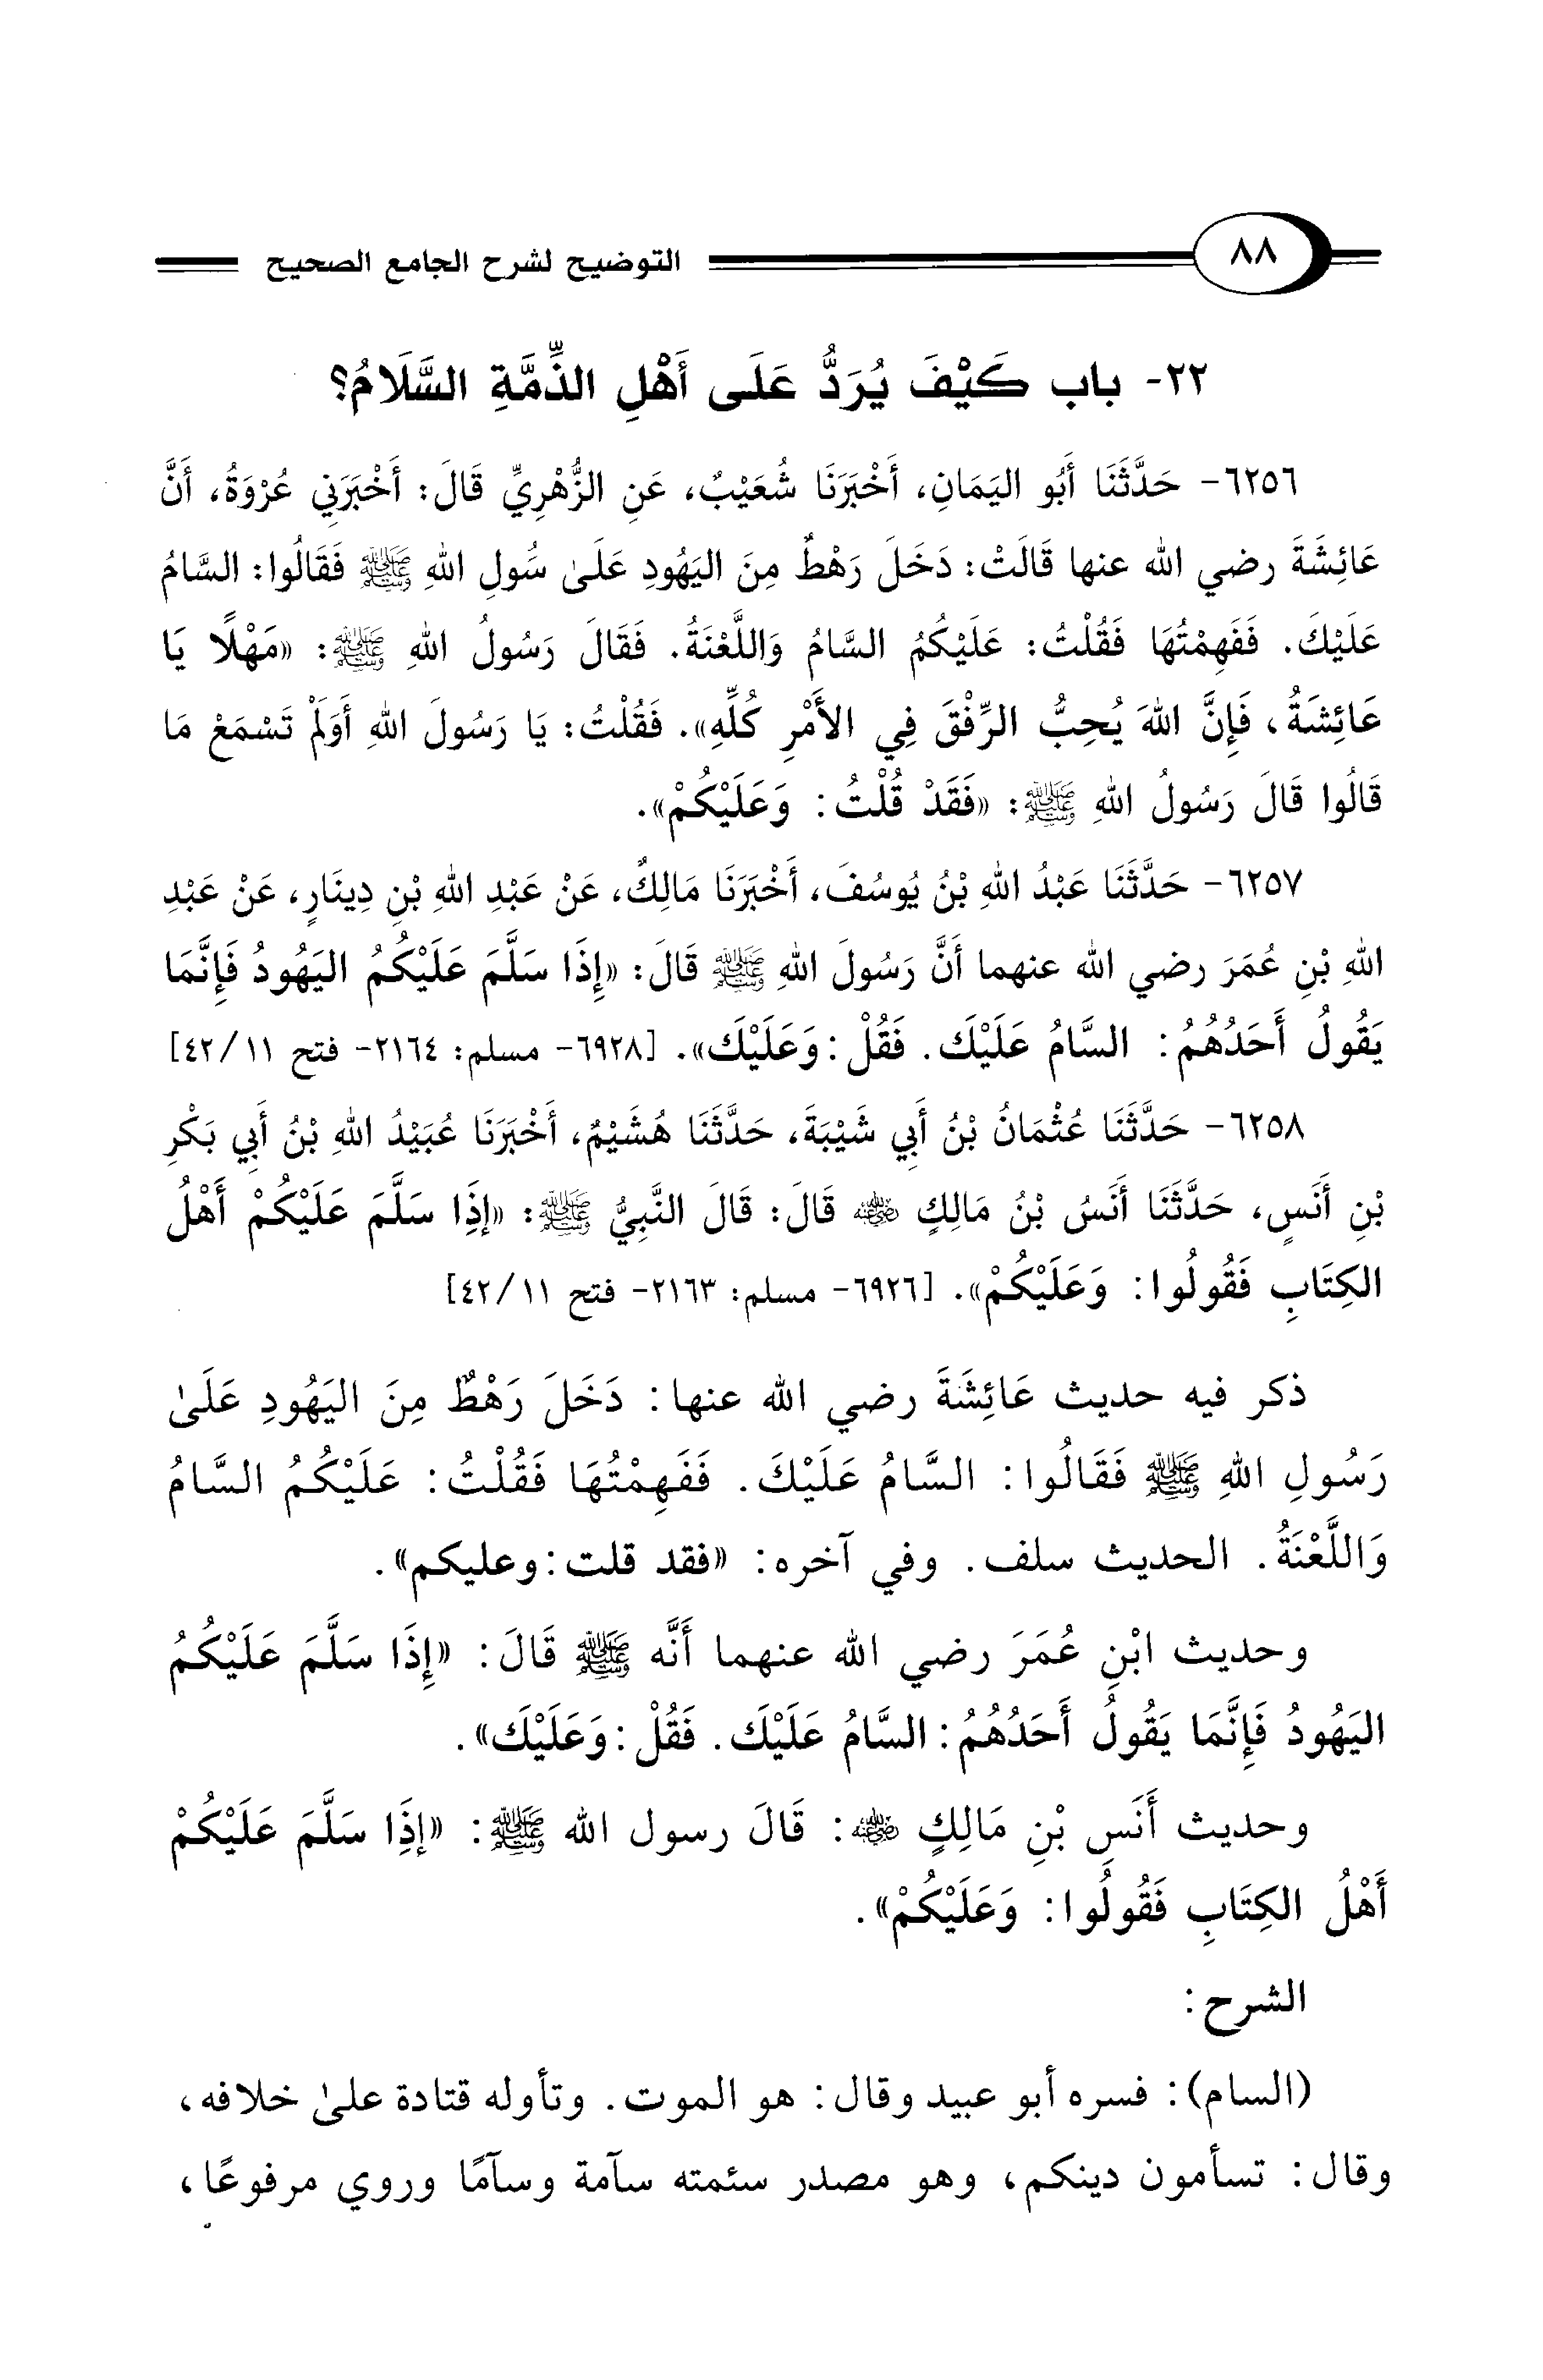 ٨٨ التوضيح لشرح الجامع الصحيح
٢٢- باب كَيْفَ يُرَدُّ عَلَى أَهْلِ الذِّمَّةِ السَّلَامُ؟
٦٢٥٦- حَدَّثَنَا أَبُو اليَمَانِ، أَخْبَرَنَا شُعَيْبٌ، عَنِ الزُّهْرِيِّ قَالَ: أَخْبَرَنِي عُرْوَةُ، أَنَّ
عَائِشَةَ رضي الله عنها قَالَتْ: دَخَلَ رَهْطٌ مِنَ اليَهُودِ عَلَىٰ سُولِ اللهِ ﷺ فَقَالُوا: السَّامُ
عَلَيْكَ. فَفَهِمْتُهَا فَقُلْتُ: عَلَيْكُمُ السَّامُ وَاللَّعْنَةُ. فَقَالَ رَسُولُ اللهِ ﷺ: «مَهْلًا يَا
عَائِشَةُ، فَإِنَّ اللهَ يُحِبُّ الرِّفْقَ فِي الأَمْرِ كُلِّهِ». فَقُلْتُ: يَا رَسُولَ اللهِ أَوَلَمْ تَسْمَعْ مَا
قَالُوا قَالَ رَسُولُ اللهِ ﷺ: «فَقَدْ قُلْتُ: وَعَلَيْكُمْ».
٦٢٥٧- حَدَّثَنَا عَبْدُ اللهِ بْنُ يُوسُفَ، أَخْبَرَنَا مَالِكٌ، عَنْ عَبْدِ اللهِ بْنِ دِينَارٍ، عَنْ عَبْدِ
اللهِ بْنِ عُمَرَ رضي الله عنهما أَنَّ رَسُولَ اللهِ ﷺ قَالَ: «إِذَا سَلَّمَ عَلَيْكُمُ اليَهُودُ فَإِنَّمَا
يَقُولُ أَحَدُهُمُ: السَّامُ عَلَيْكَ. فَقُلْ: وَعَلَيْكَ». [٦٩٢٨- مسلم: ٢١٦٤- فتح ١١/٤٢]
٦٢٥٨- حَدَّثَنَا عُثْمَانُ بْنُ أَبِي شَيْبَةَ، حَدَّثَنَا هُشَيْمٌ، أَخْبَرَنَا عُبَيْدُ اللهِ بْنُ أَبِي بَكْرِ
بْنِ أَنَسٍ، حَدَّثَنَا أَنَسُ بْنُ مَالِكٍ رضي الله عنه قَالَ: قَالَ النَّبِيُّ ﷺ: «إِذَا سَلَّمَ عَلَيْكُمْ أَهْلُ
الكِتَابِ فَقُولُوا: وَعَلَيْكُمْ». [٦٩٢٦- مسلم: ٢١٦٣- فتح ١١/٤٢]
ذكر فيه حديث عَائِشَةَ رضي الله عنها: دَخَلَ رَهْطٌ مِنَ اليَهُودِ عَلَىٰ
رَسُولِ اللهِ ﷺ فَقَالُوا: السَّامُ عَلَيْكَ. فَفَهِمْتُهَا فَقُلْتُ: عَلَيْكُمُ السَّامُ
وَاللَّعْنَةُ. الحديث سلف. وفي آخره: «فقد قلت: وعليكم».
وحديث ابْنِ عُمَرَ رضي الله عنهما أَنَّه ﷺ قَالَ: «إِذَا سَلَّمَ عَلَيْكُمُ
اليَهُودُ فَإِنَّمَا يَقُولُ أَحَدُهُمُ: السَّامُ عَلَيْكَ. فَقُلْ: وَعَلَيْكَ».
وحديث أَنَسِ بْنِ مَالِكٍ رضي الله عنه: قَالَ رسول الله ﷺ: «إِذَا سَلَّمَ عَلَيْكُمْ
أَهْلُ الكِتَابِ فَقُولُوا: وَعَلَيْكُمْ».
الشرح:
(السام): فسره أبو عبيد وقال: هو الموت. وتأوله قتادة علىٰ خلافه،
وقال: تسأمون دينكم، وهو مصدر سئمته سآمة وسآمًا وروي مرفوعًا،